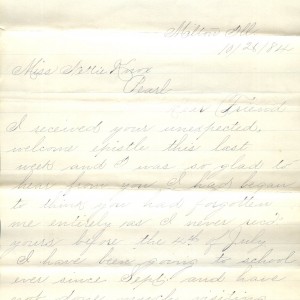 Milton Ill
10/26/84
Miss Knox
Pearl
Dear Friend
I received your unexpected,
welcome epistle this last
week and I was so glad to
hear from you I had began
to think you had forgotten
me entirely as I never rec'd
yours before the 4th of July
I have been going to school
ever since Sept. and have
not done much visiting